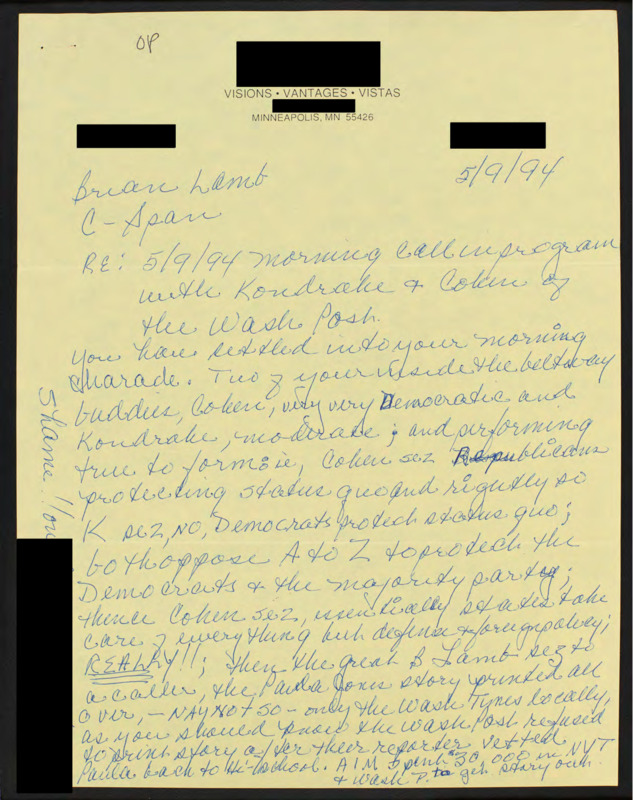 OP
VISIONS • VANTAGES • VISTAS
MINNEAPOLIS, MN 55426
5/9/94
Brian Lamb
C-Span
RE: 5/9/94 morning call in program
with Kondrake & Cohen of
the Wash Post.
You have settled into your morning
charade. Two of your inside the beltway
buddies, Cohen, very very Democratic and
Kondrake, moderate; and performing
true to form: ie, Cohen sez Republicans
protecting status quo and rightly so
K sez, NO, Democrats protect status quo;
both oppose A to Z to protect the
Democrats & the majority party;
thence Cohen sez, essentially states take
care of everything but defense & foreign policy;
REALLY!!; then the great B Lamb sez to
a caller, the Paula Jones story printed all
over, – NAY NOT SO – only the Wash Tymes locally,
as you should know the Wash Post refused
to print story after their reporter vetted
Paula back to Hi-school. AIM spent $30,000 in NYT
& Wash P. to get story out.
Shame!!